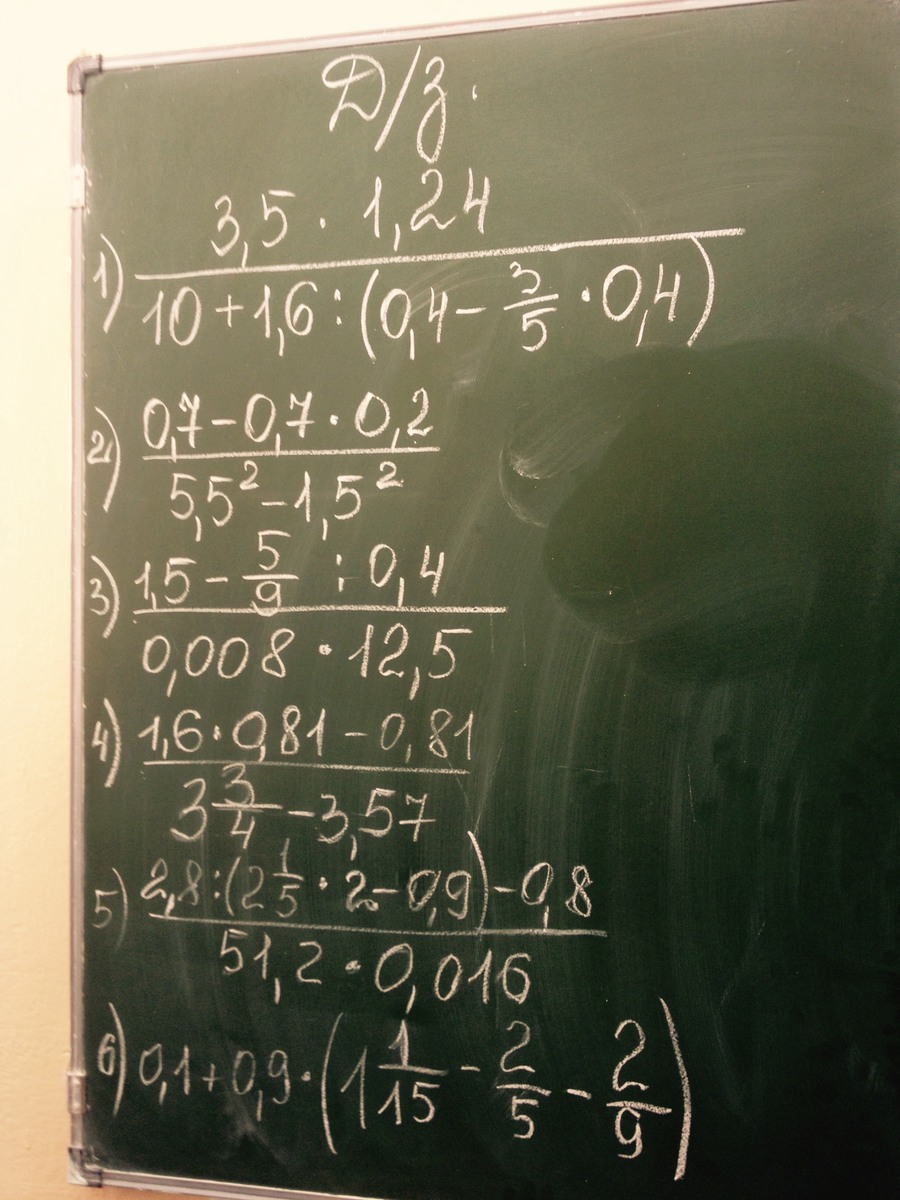 Д/з.
1) 3,5 · 1,24 / 10 + 1,6 : (0,4 - 3/5 · 0,4)
2) 0,7 - 0,7 · 0,2 / 5,5² - 1,5²
3) 1,5 - 5/9 : 0,4 / 0,008 · 12,5
4) 1,6 · 0,81 - 0,81 / 3 3/4 - 3,57
5) 2,8 : (2 1/5 · 2 - 0,9) - 0,8 / 51,2 · 0,016
6) 0,1 + 0,9 · (1 1/15 - 2/5 - 2/9)